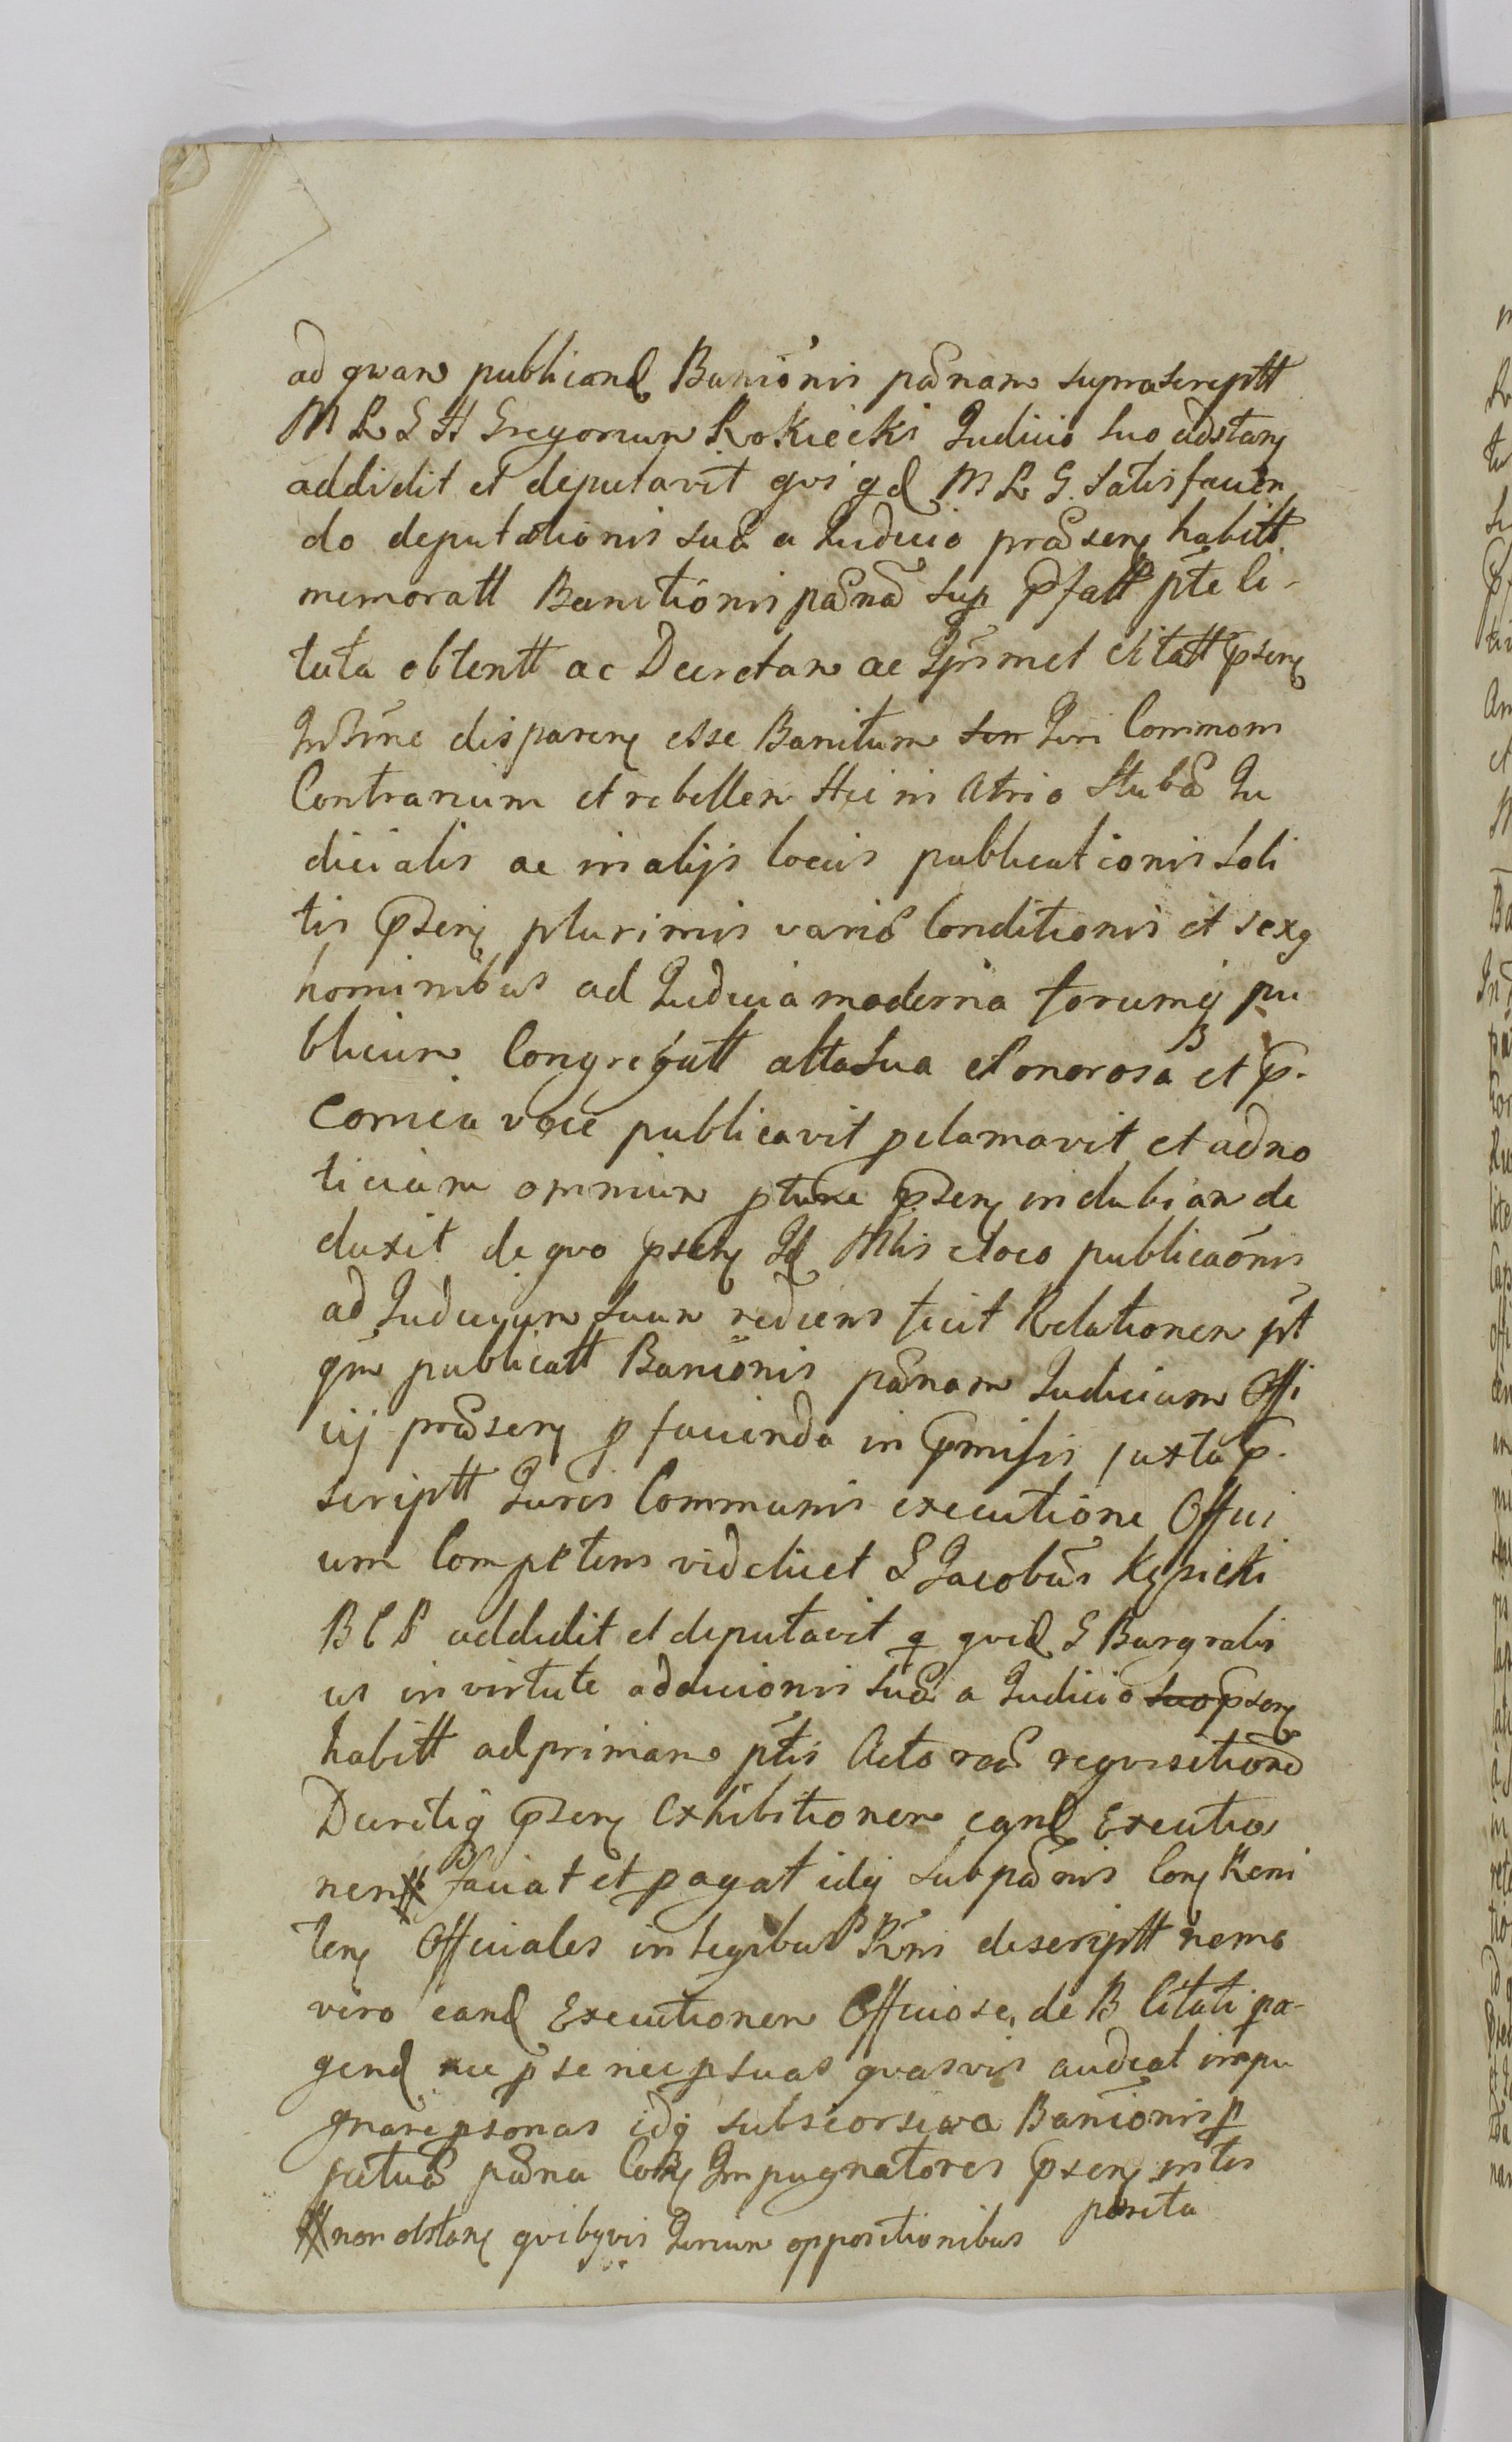 ad qvam publicand Banionis pænam suprascriptt
M R G H Gregorium Rokicki Judicio suo adstan
addidit et deputavit qvi qd M R G. satisfacien
do deputationis suæ a Judicio præsen habitt
memoratt Banitionis pænæ sup pfatt pte Ci-
tata obtentt ac Decretam ac Ipsimet Citatt psen
Intime disparen esse Banitum Juri Commom
Contrarium et rebellem Hic in Atrio Stubæ Ju
dicialis ac in alijs locis publicationis soli
tis psen plurimis variæ Conditionis et sexq
hominibus ad Judicia moderna forumq pu
blicum Congregatt alta sua et onorosa et p.
conica voce publicavit pclamavit et ad no
ticiam omnium ptune psen indubiam de
duxit de qvo psen Id Mlis e loco publicaonis
ad Judicium suum rediens fecit Relationem pt
qm publicatt Banionis pænam Judicium Offi
cij præsen p facienda in pmissis juxta p.
scriptt Juris Communis executione Offici
um Competens videlicet G Jacobum Kęsicki
B C P addidit et deputavit q qvid G Burgrabi
us in virtute addicionis suæ a Judicio suo psen
habitt ad primam ptis Actoræ reqvisitionē
Decretiq psen exhibitionem eand Executio
nem faciat et pagat idq sub pænis Con Reni
ten Officiales in legibus Rni descriptt nemo
vero eand Executionem Officiose de B Citati pa-
gend nec p se nec p suas qvasvis audeat impu
gnare psonas idq sub seorsiva Banionis p
petuæ pæna Con Impugnatores psen intis
parita
non obstan qvibqvis Jurium oppositionibus